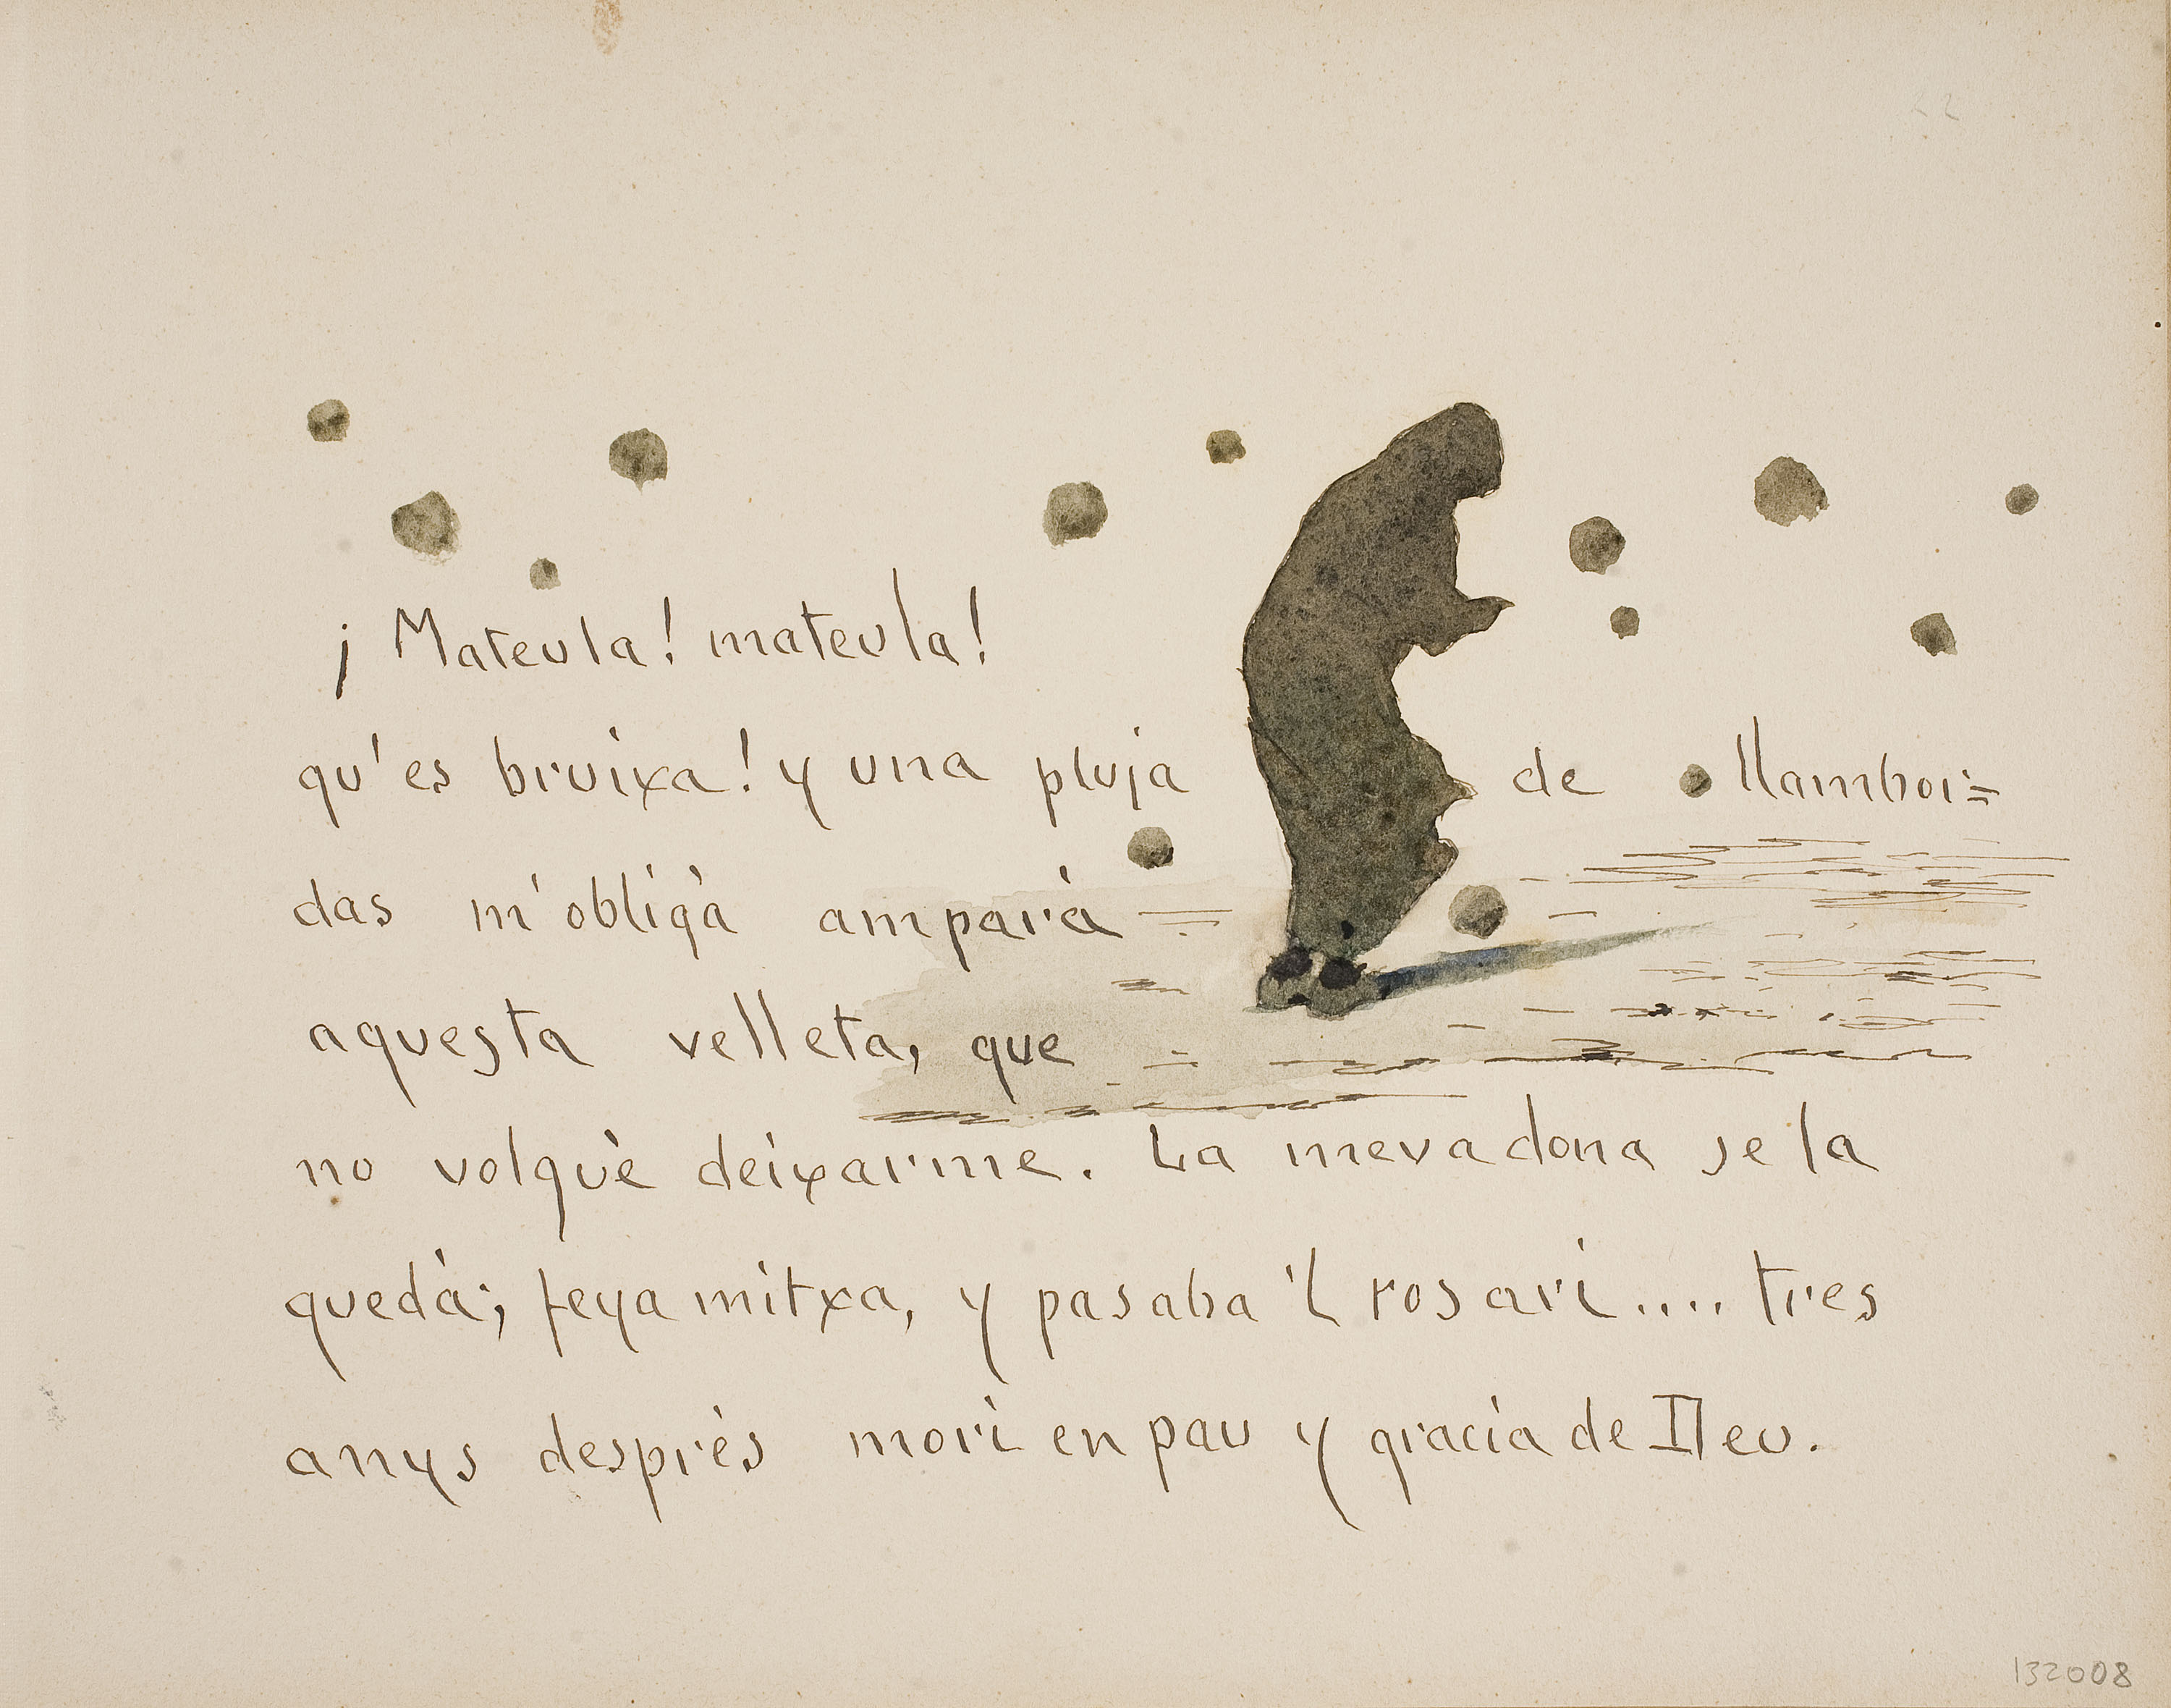 22
¡Mateula! mateula!
qu'es bruixa! y una pluja de llamboi=
das m'obligà amparà
aquesta velleta, que
no volguè deixarme. La meva dona se la
quedà; feya mitxa, y pasaba 'l rosari.... tres
anys desprès morì en pau y gracia de Deu.
132008